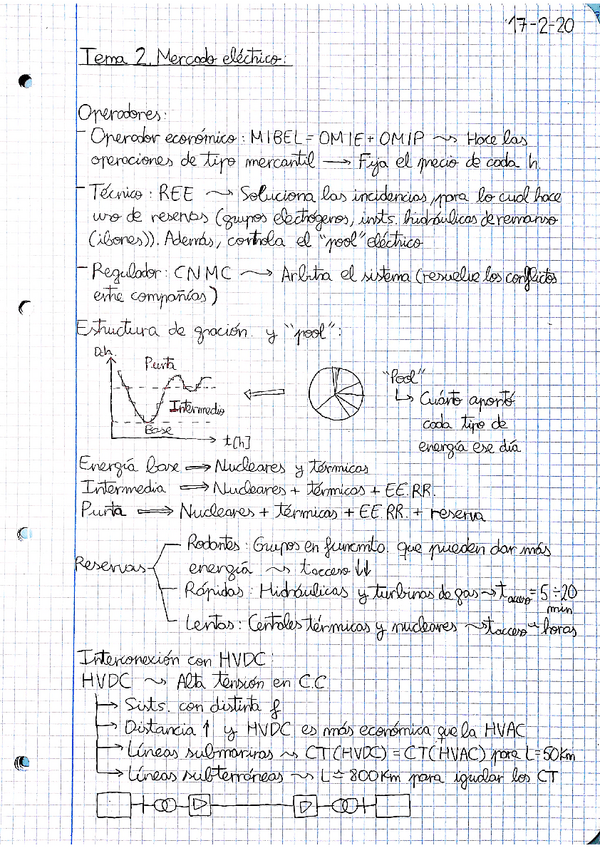 17-2-20
Tema 2. Mercado eléctrico:
Operadores:
- Operador económico: MIBEL = OMIE + OMIP ⇝ Hace las
operaciones de tipo mercantil → Fija el precio de cada h.
- Técnico: REE ⇝ Soluciona las incidencias, para lo cual hace
uso de reservas (grupos electrógenos, insts. hidráulicas de remanso
(ibones)). Además, controla el "pool" eléctrico
- Regulador: CNMC ⇝ Arbitra el sistema (resuelve los conflictos
entre compañías)
Estructura de gración. y "pool":
Punta
Intermedio
Base
t[h]
"Pool"
↳ Cuánto aportó
cada tipo de
energía ese día
Energía base ⇒ Nucleares y térmicas
Intermedia ⇒ Nucleares + térmicas + EE.RR.
Punta ⇒ Nucleares + térmicas + EE.RR. + reserva
Reservas
Rodantes: Grupos en funcmto. que pueden dar más
energía ⇝ tacceso ↓↓
Rápidas: Hidráulicas y turbinas de gas ⇝ tacceso = 5 ÷ 20
min
Lentas: Centrales térmicas y nucleares ⇝ tacceso = horas
Interconexión con HVDC:
HVDC ⇝ Alta tensión en C.C
→ Sists. con distinta f
→ Distancia ↑ y HVDC es más económica que la HVAC
→ Líneas submarinas ⇝ CT(HVDC) = CT(HVAC) para L=50Km
→ Líneas subterráneas ⇝ L ≐ 800Km para igualar los CT